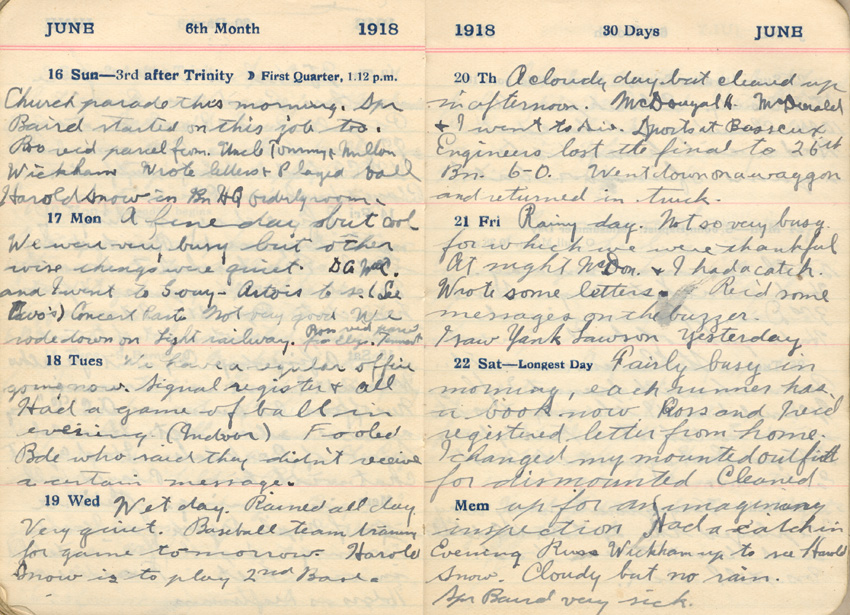 JUNE 6th Month 1918
16 Sun—3rd after Trinity ☽ First Quarter, 1.12 p.m.
Church parade this morning. Spr
Baird started on this job too.
Ro ve'd parcel from Uncle Tommy &
Wickham Wrote letters & Played ball
Harold Snow in Bn HQ orderly room.
17 Mon A fine day but cool
We were very busy but other
wise things were quiet. D A McC.
and I went to Gouy-Artois to see (See
Two's) Concert Party Not very good We
rode down on Light railway.
18 Tues We have a regular office
going now. Signal register & all
Had a game of ball in
evening (Indoor) Fooled
Bde who said they didn't receive
a certain message.
19 Wed Wet day. Rained all day
Very quiet. Baseball team training
for game to-morrow. Harold
Snow is to play 2nd Base.
1918 30 Days JUNE
20 Th A cloudy day but cleared up
in afternoon. McDougall. McDonald
& I went to Div. Sports at Basseux
Engineers lost the final to 26th
Bn. 6-0. Went down on a waggon
and returned in truck.
21 Fri Rainy day. Not so very busy
for which we were thankful
At night McDon. & I had a catch.
Wrote some letters. Re'd some
messages on the buzzer.
I saw Yank Lawson yesterday
22 Sat—Longest Day Fairly busy in
morning, each runner has
a book now Ross and I re'd
registered letter from home.
I changed my mounted outfit
for dismounted Cleaned
Mem up for an imaginary
inspection Had a catch in
Evening Russ Wickham up to see Harold
Snow. Cloudy but no rain.
Spr Baird very sick.